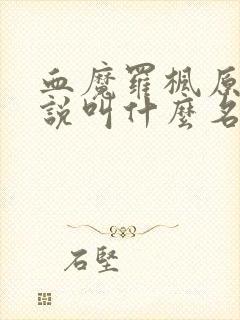 血魔羅楓原
說叫什麼名
石堅